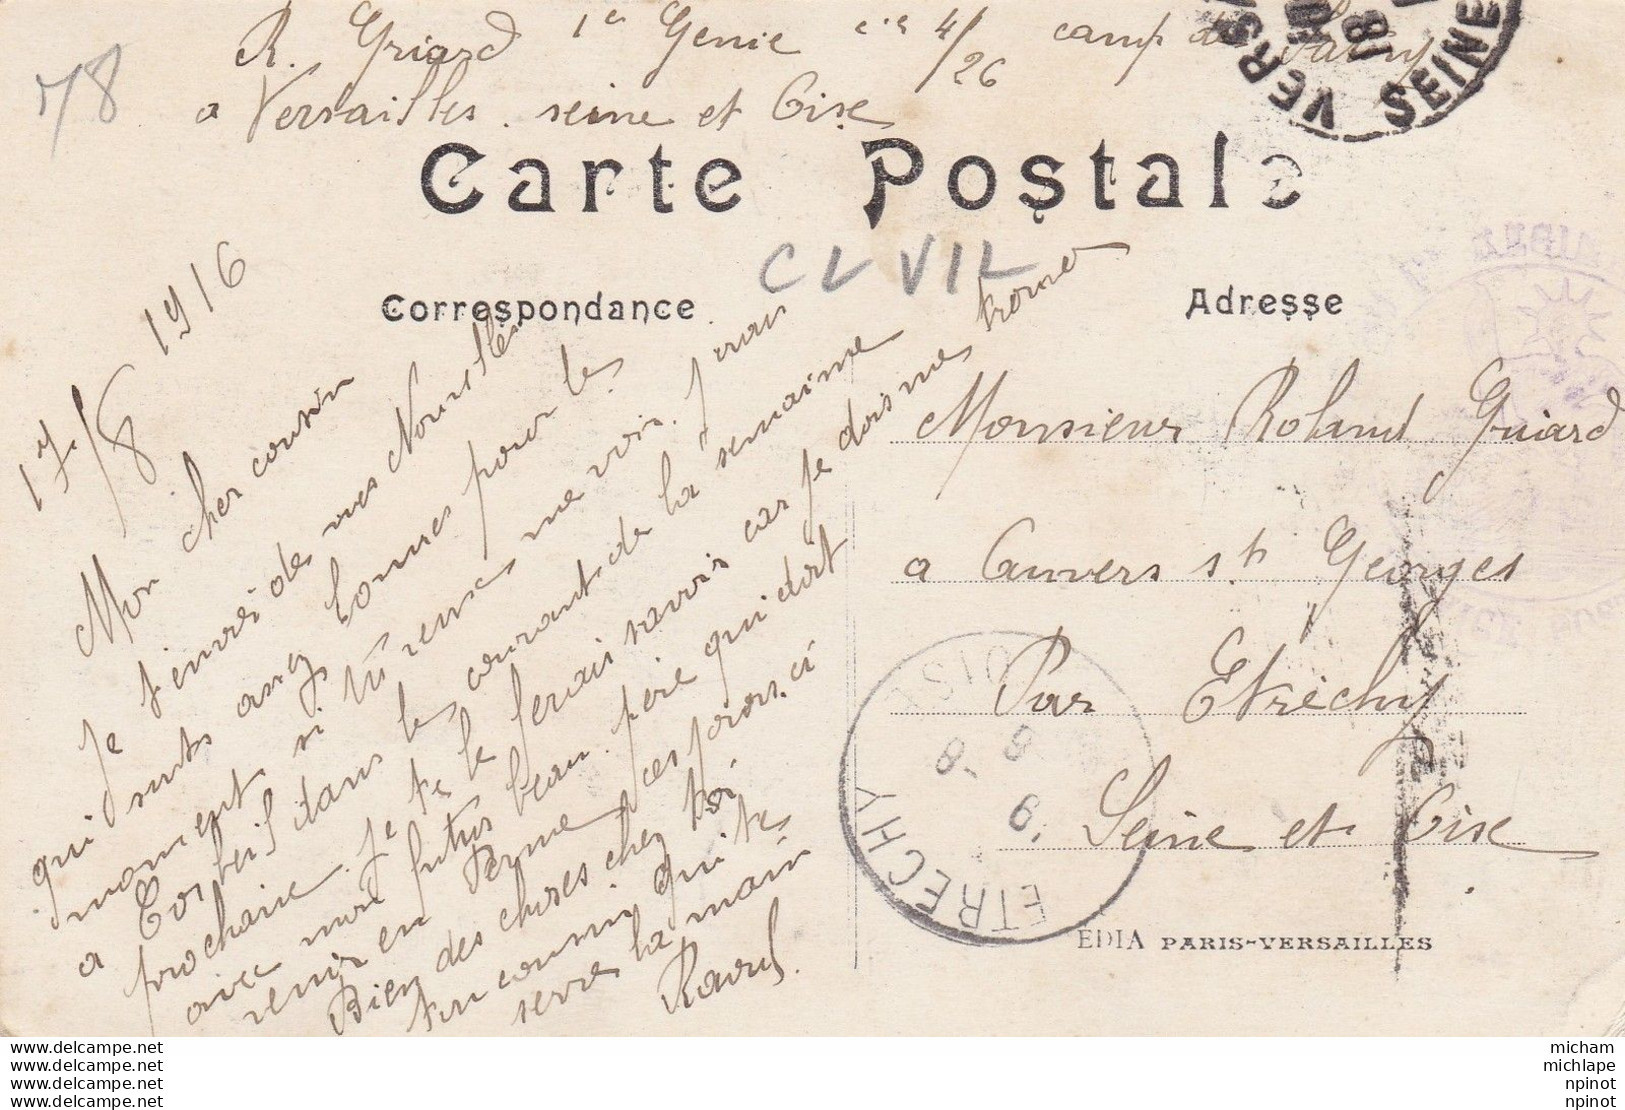 R. Griard 1er Genie cie 4/26 camp de Satory
a Versailles. seine et Oise
78
VERSAILLES
SEINE
Carte Postale
CL VIL
Correspondance
17/8 1916
Mon cher cousin
Je t'envoi de mes Nouvelles
qui sont assez bonnes pour le
moment. si tu venes me voir. j'irais
a Corbeil dans le courant de la semaine
prochaine. Je te le ferais savoir car je dois me trouver
avec mon futur beau-père qui doit
venir en Perme ces jours-ci
Bien des choses chez toi
ton cousin qui te
serres la main
Raoul.
Adresse
Monsieur Roland Griard
a Auvers st Georges
Par Etréchy
Seine et Oise
ETRECHY
EDIA PARIS-VERSAILLES
www.delcampe.net
www.delcampe.net
www.delcampe.net
www.delcampe.net
micham
michlape
npinot
npinot